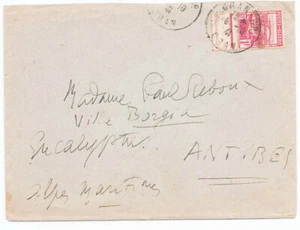 ORAN
ORAN
Madame Paul Reboux
Villa Borgia
Eucalyptus
ANTIBES
Alpes Maritimes